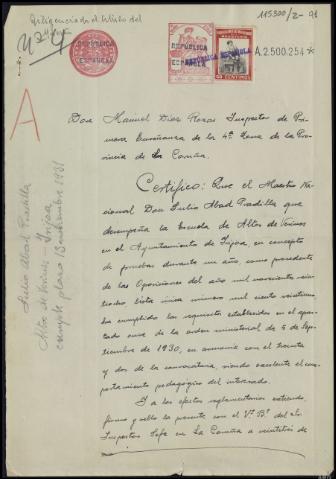 Diligenciado el título del
115300/2-91
REPÚBLICA
ESPAÑOLA
REPÚBLICA
ESPAÑOLA
REPÚBLICA ESPAÑOLA
A.2.500.254 *
A
Don Manuel Díaz Rozas Inspector de Pri-
mera Enseñanza de la 4ª Zona de la Pro-
vincia de La Coruña.
Certifico: Que el Maestro Na-
cional Don Julio Abad Pradilla que
desempeña la Escuela de Altos de Veiras
en el Ayuntamiento de Irijoa, en concepto
de pruebas durante un año como procedente
de las Oposiciones del año mil novecientos vein-
tiocho lista única número mil ciento veintiuno
ha cumplido los requisitos establecidos en el apar-
tado once de la orden ministerial de 4 de Sep-
tiembre de 1930, en armonía con el treinta
y dos de la convocatoria, siendo excelente el com-
portamiento pedagógico del interesado.
Y a los efectos reglamentarios extiendo,
firmo y sello la presente con el Vº Bº del Sr.
Inspector Jefe en La Coruña a veintitrés de
Julio Abad Pradilla
Altos de Veiras - Irijoa
cumple plazo 13 septiembre 1931